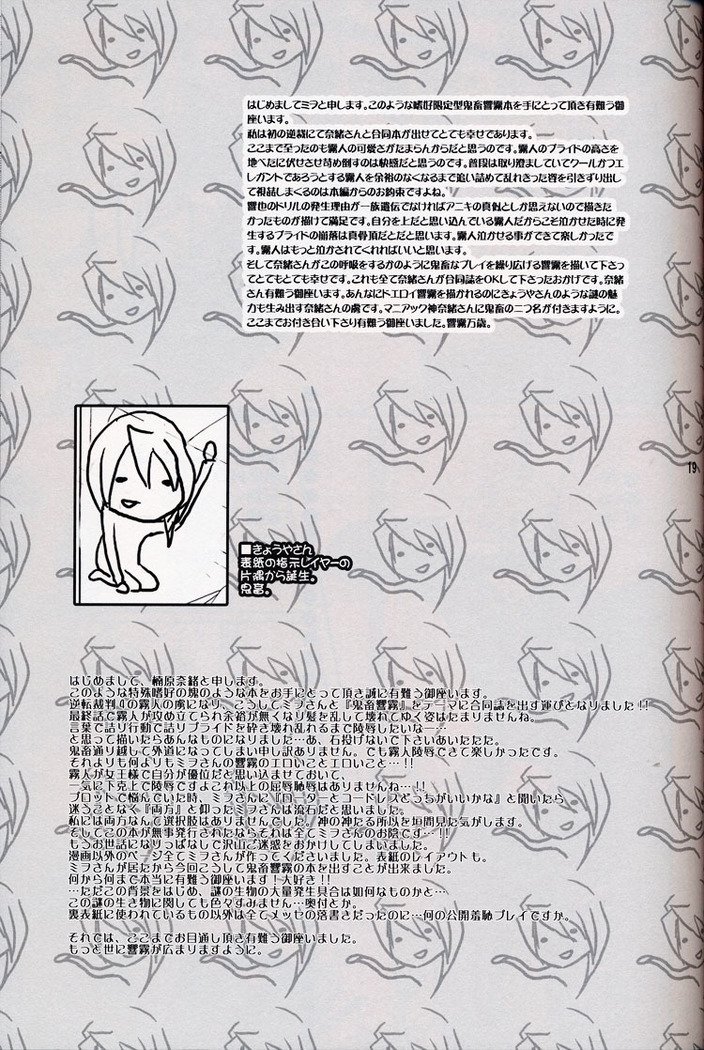 はじめましてミヲと申します。このような嗜好限定型鬼畜響霧本を手にとって頂き有難う御
座います。
私は初の逆裁にて奈緒さんと合同本が出せてとても幸せであります。
ここまで至ったのも霧人の可愛さがたまらんからだと思うのです。霧人のプライドの高さを
地べたに伏せさせ苛め倒すのは快感だと思うのです。普段は取り澄ましていてクールかつエ
レガントであろうとする霧人を余裕のなくなるまで追い詰めて乱れきった姿を引きずり出し
て視詰しまくるのは本編からのお約束ですよね。
響也のドリルの発生理由が一族遺伝でなければアニキの真似としか思えないので描きた
かったものが描けて満足です。自分を上だと思い込んでいる霧人だからこそ泣かせた時に発
生するプライドの崩落は真骨頂だとだと思います。霧人泣かせる事ができて楽しかったで
す。霧人はもっと泣かされてくれればいいと思います。
そして奈緒さんがこの呼吸をするかのように鬼畜なプレイを繰り広げる響霧を描いて下さっ
てとてもとても幸せです。これも全て奈緒さんが合同誌をOKして下さったおかげです。奈緒
さん有難う御座います。あんなにドエロイ響霧を描かれるのにきょうやさんのような謎の魅
力も生み出す奈緒さんの虜です。マニアック神奈緒さんに鬼畜の二つ名が付きますように。
ここまでお付き合い下さり有難う御座いました。響霧万歳。
19
■きょうやさん
表紙の指示レイヤーの
片隅から誕生。
鬼畜。
はじめまして、楠原奈緒と申します。
このような特殊嗜好の塊のような本をお手にとって頂き誠に有難う御座います。
逆転裁判4の霧人の虜になり、こうしてミヲさんと『鬼畜響霧』をテーマに合同誌を出す運びとなりました!!
最終話で霧人が攻め立てられ余裕が無くなり髪を乱して壊れてゆく姿はたまりませんね。
言葉で詰り行動で詰りプライドを砕き壊れ乱れるまで陵辱したいな…ー
と思って描いたらあんなものになりました…あ、石投げないで下さいあいたたた。
鬼畜通り越して外道になってしまい申し訳ありません。でも霧人陵辱できて楽しかったです。
それよりも何よりもミヲさんの響霧のエロいことエロいこと…!!
霧人が女王様で自分が優位だと思い込ませておいて、
一気に下克上で陵辱ですよこれ以上の屈辱恥辱はありませんね…!!
プロットで悩んでいた時、ミヲさんに『ローターとコードレスどっちがいいかな』と聞いたら
迷うことなく『両方』と仰ったミヲさんは流石だと思いました。
私には両方なんて選択肢はありませんでした。神の神たる所以を垣間見た気がします。
そしてこの本が無事発行されたならそれは全てミヲさんのお陰です…!!
もうお世話になりっぱなしで沢山ご迷惑をおかけしてしまいました。
漫画以外のページ全てミヲさんが作ってくださいました。表紙のレイアウトも。
ミヲさんが居たから今回こうして鬼畜響霧の本を出すことが出来ました。
何から何まで本当に有難う御座います!大好き!!
…ただこの背景をはじめ、謎の生物の大量発生具合は如何なものかと…
この謎の生き物に関しても色々すみません…奥付とか。
裏表紙に使われているもの以外は全てメッセの落書きだったのに…何の公開羞恥プレイですか。
それでは、ここまでお目通し頂き有難う御座いました。
もっと世に響霧が広まりますように。